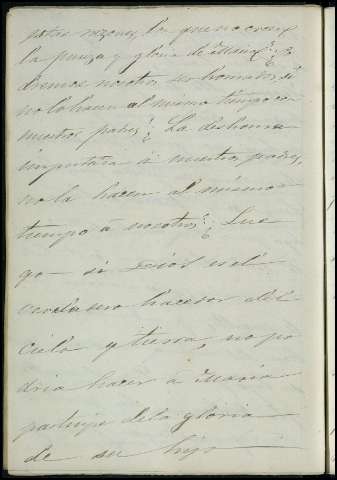 estas razones, los que no creen
la pureza y gloria de Maria? ¿Po
dremos nosotros ser honrados, si
no lo hacen al mismo tiempo con
nuestros padres? ¿La deshonra
imputada á nuestros padres,
no la hacen al mismo
tiempo á nosotros? ¿Lue
go si Dios es el
verdadero hacedor del
cielo y tierra, no po
dria hacer á Maria
participe de la gloria
de su hijo